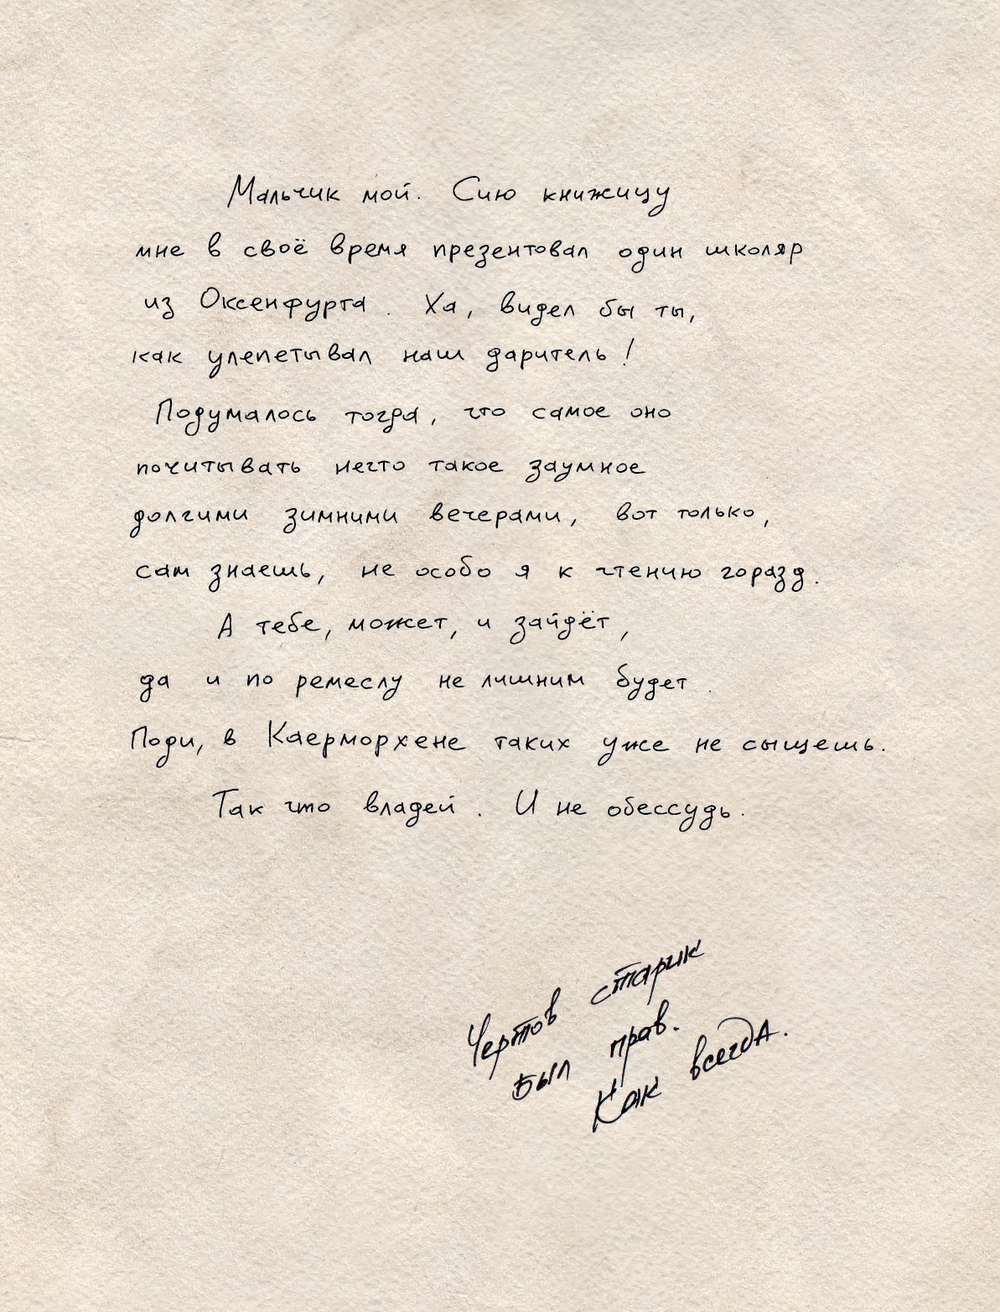 Мальчик мой. Сию книжицу
мне в своё время презентовал один школяр
из Оксенфурта. Ха, видел бы ты,
как улепетывал наш даритель!
Подумалось тогда, что самое оно
почитывать нечто такое заумное
долгими зимними вечерами, вот только,
сам знаешь, не особо я к чтению горазд.
А тебе, может, и зайдёт,
да и по ремеслу не лишним будет.
Поди, в Каерморхене таких уже не сыщешь.
Так что владей. И не обессудь.
Чертов старик
был прав.
Как всегда.